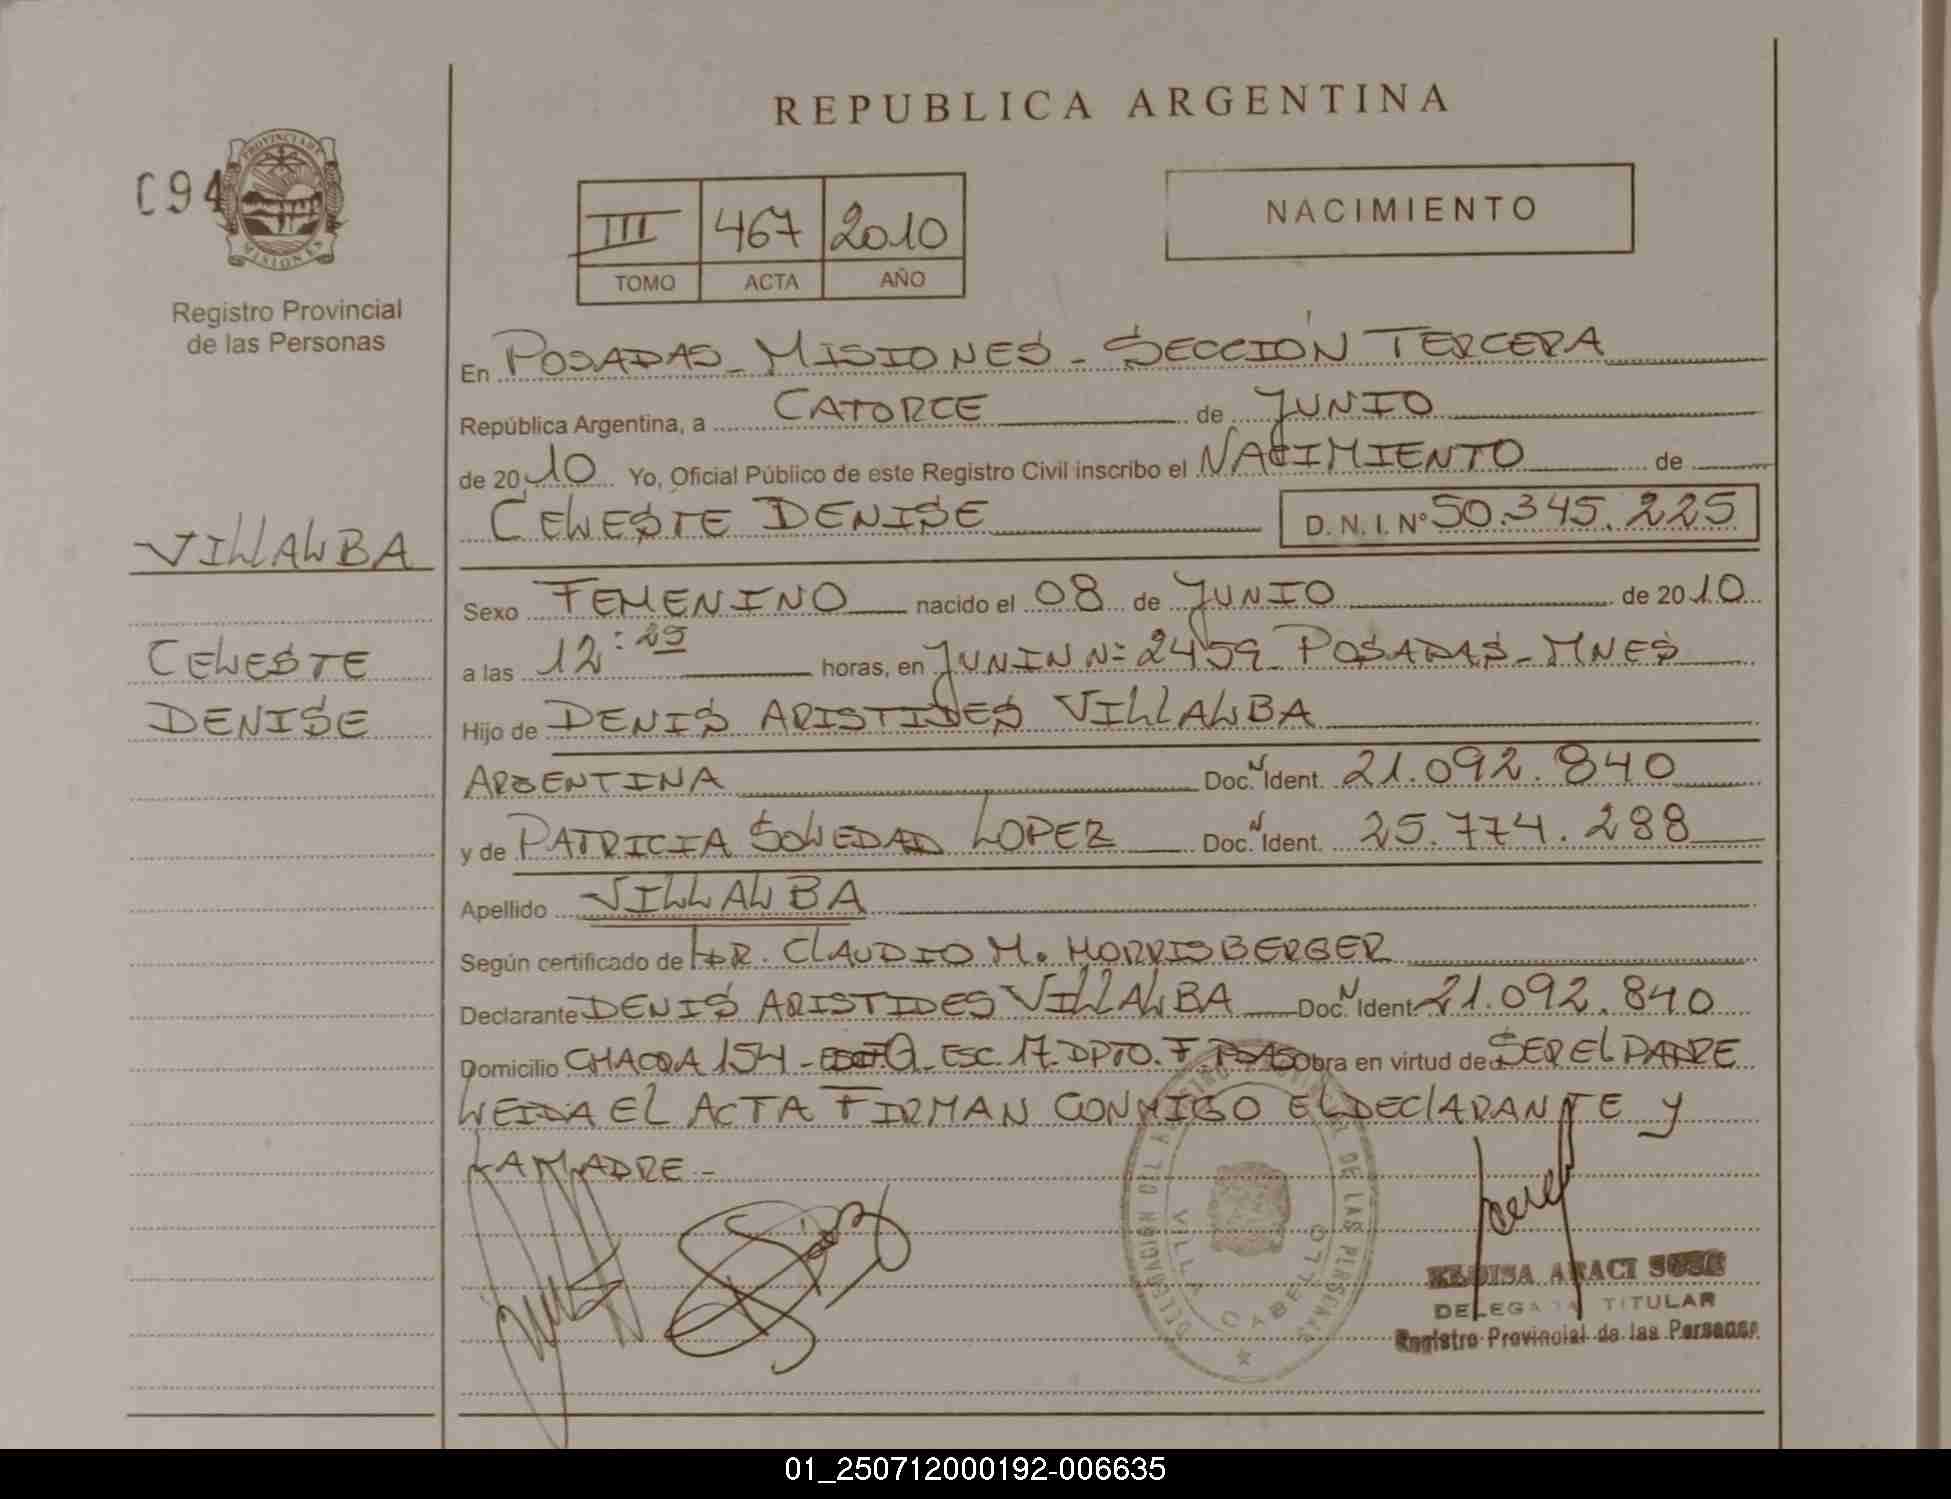 REPUBLICA ARGENTINA
C94
PROVINCIA DE MISIONES
Registro Provincial
de las Personas
III 467 2010
TOMO ACTA AÑO
NACIMIENTO
En POSADAS - MISIONES - SECCIÓN TERCERA
República Argentina, a CATORCE de JUNIO
de 2010 Yo, Oficial Público de este Registro Civil inscribo el NACIMIENTO de
CELESTE DENISE D. N. I. Nº 50.345.225
VILLALBA
CELESTE
DENISE
Sexo FEMENINO nacido el 08 de JUNIO de 2010
a las 12:25 horas, en JUNIN Nº 2459 POSADAS - MNES
Hijo de DENIS ARISTIDES VILLALBA
ARGENTINA Doc. N Ident. 21.092.840
y de PATRICIA SOLEDAD LOPEZ Doc. N Ident. 25.774.288
Apellido VILLALBA
Según certificado de DR. CLAUDIO M. MORRISBERGER
Declarante DENIS ARISTIDES VILLALBA Doc. N Ident. 21.092.840
Domicilio CHACRA 154 - ESC. 17 DPTO. F Obra en virtud de SER EL PADRE
LEIDA EL ACTA FIRMAN CONMIGO EL DECLARANTE Y
LA MADRE -
DELEGACION DEL REGISTRO PROVINCIAL DE LAS PERSONAS
VILLA CABELLO
ARACI
DELEGADA TITULAR
Registro Provincial de las Personas
01_250712000192-006635